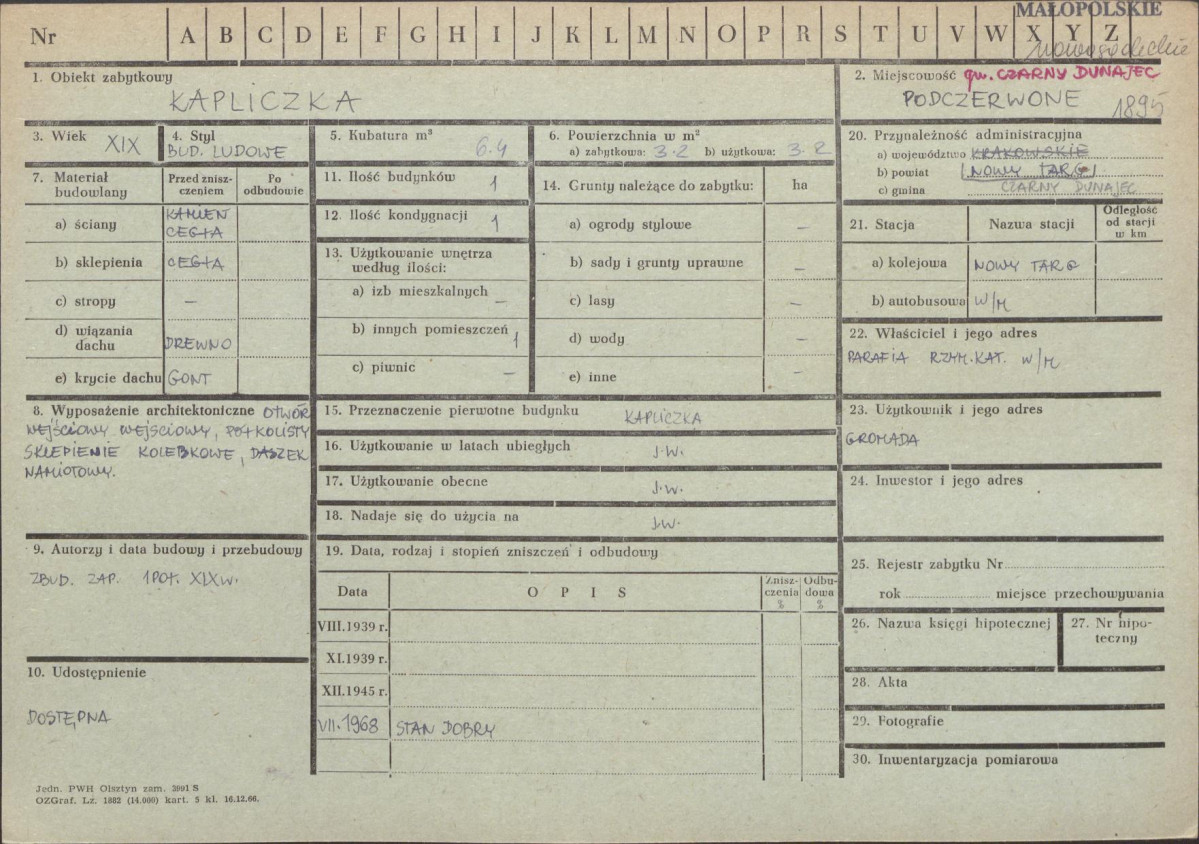 MAŁOPOLSKIE
Nr A B C D E F G H I J K L M N O P R S T U V W X Y Z
nowosądeckie
1. Obiekt zabytkowy
KAPLICZKA
2. Miejscowość gm. CZARNY DUNAJEC
PODCZERWONE 1895
3. Wiek XIX
4. Styl
BUD. LUDOWE
5. Kubatura m³
6.4
6. Powierzchnia w m²
a) zabytkowa: 3.2 b) użytkowa: 3.2
7. Materiał budowlany
Przed zniszczeniem
Po odbudowie
a) ściany KAMIEŃ
CEGŁA
b) sklepienia CEGŁA
c) stropy –
d) wiązania dachu DREWNO
e) krycie dachu GONT
8. Wyposażenie architektoniczne OTWÓR
WEJŚCIOWY WEJŚCIOWY, PÓŁKOLISTY
SKLEPIENIE KOLEBKOWE, DASZEK
NAMIOTOWY.
9. Autorzy i data budowy i przebudowy
ZBUD. ZAP. 1 POŁ. XIX w.
10. Udostępnienie
DOSTĘPNA
11. Ilość budynków 1
12. Ilość kondygnacji 1
13. Użytkowanie wnętrza
według ilości:
a) izb mieszkalnych –
b) innych pomieszczeń 1
c) piwnic –
14. Grunty należące do zabytku: ha
a) ogrody stylowe –
b) sady i grunty uprawne –
c) lasy –
d) wody –
e) inne –
15. Przeznaczenie pierwotne budynku KAPLICZKA
16. Użytkowanie w latach ubiegłych J.W.
17. Użytkowanie obecne J.W.
18. Nadaje się do użycia na J.W.
19. Data, rodzaj i stopień zniszczeń i odbudowy
Data OPIS Zniszczenia % Odbudowa %
VIII.1939 r.
XI.1939 r.
XII.1945 r.
VII.1968 STAN DOBRY
20. Przynależność administracyjna
a) województwo KRAKOWSKIE
b) powiat NOWY TARG
c) gmina CZARNY DUNAJEC
21. Stacja Nazwa stacji Odległość od stacji w km
a) kolejowa NOWY TARG
b) autobusowa W/M
22. Właściciel i jego adres
PARAFIA RZYM.KAT. W/M
23. Użytkownik i jego adres
GROMADA
24. Inwestor i jego adres
25. Rejestr zabytku Nr
rok miejsce przechowywania
26. Nazwa księgi hipotecznej
27. Nr hipoteczny
28. Akta
29. Fotografie
30. Inwentaryzacja pomiarowa
Jedn. PWH Olsztyn zam. 3991 S
OZGraf. Lz. 1882 (14.000) kart. 5 kl. 16.12.66.